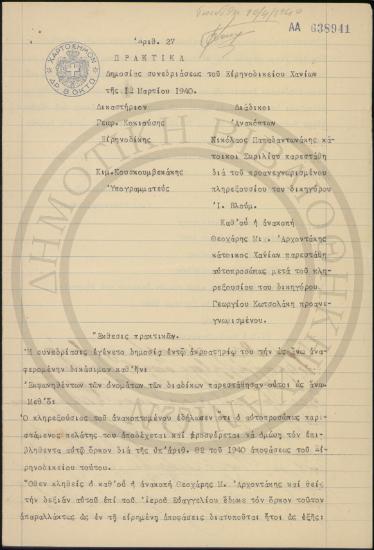 ΑΑ 638941
ἀριθ. 27
ΧΑΡΤΟΣΗΜΟΝ
ΔΡ. 8 ΟΚΤΩ
ΠΡΑΚΤΙΚΑ
Δημοσίας συνεδριάσεως τοῦ Εἰρηνοδικείου Χανίων
τῆς 12 Μαρτίου 1940.
Δικαστήριον
Γεωρ. Κοκιούσης
Εἰρηνοδίκης
Κιμ. Κουσκουμβεκάκης
Ὑπογραμματεύς
Διάδικοι
Ἀνακόπτων
Νικόλαος Παπαδαντωνάκης κά-
τοικος Συριλίου παρεστάθη
διά τοῦ προανεγνωρισμένου
πληρεξουσίου του δικηγόρου
Ἰ. Βλούμ.
Καθ' οὗ ἡ ἀνακοπή
Θεοχάρης Μιχ. Ἀρχοντάκης
κάτοικος Χανίων παρεστάθη
αὐτοπροσώπως μετά τοῦ πλη-
ρεξουσίου του δικηγόρου
Γεωργίου Κωτσολάκη προανε-
γνωρισμένου.
Ἔκθεσις πρακτικῶν.
Ἡ συνεδρίασις ἐγένετο δημοσίᾳ ἐντῷ ἀκροατηρίῳ του τήν ὡς ἄνω ἀνα-
φερομένην δικάσιμον καθ' ἥν:
Ἐκφωνηθέντων τῶν ὀνομάτων τῶν διαδίκων παρεστάθησαν οὗτοι ὡς ἄνω
Μεθ' ὅ:
Ὁ πληρεξούσιος τοῦ ἀνακοπτομένου ἐδήλωσεν ὅτι ὁ αὐτοπροσώπως παρι-
στάμενος πελάτης του ἀποδέχεται καί προσφέρεται νά ὀμώσῃ τόν ἐπι-
βληθέντα αὐτῷ ὅρκον διά τῆς ὑπ' ἀριθ. 82 τοῦ 1940 ἀποφάσεως τοῦ Εἰ-
ρηνοδικείου τούτου.
Ὅθεν κληθείς ὁ καθ' οὗ ἡ ἀνακοπή Θεοχάρης Μ. Ἀρχοντάκης καί θείς
τήν δεξιάν αὐτοῦ ἐπί τοῦ ἱεροῦ Εὐαγγελίου ἔδωκε τόν ὅρκον τοῦτον
ἀπαραλλάκτως ὡς ἐν τῇ εἰρημένῃ ἀποφάσει διατυποῦται ἤτοι ὡς ἐξῆς: